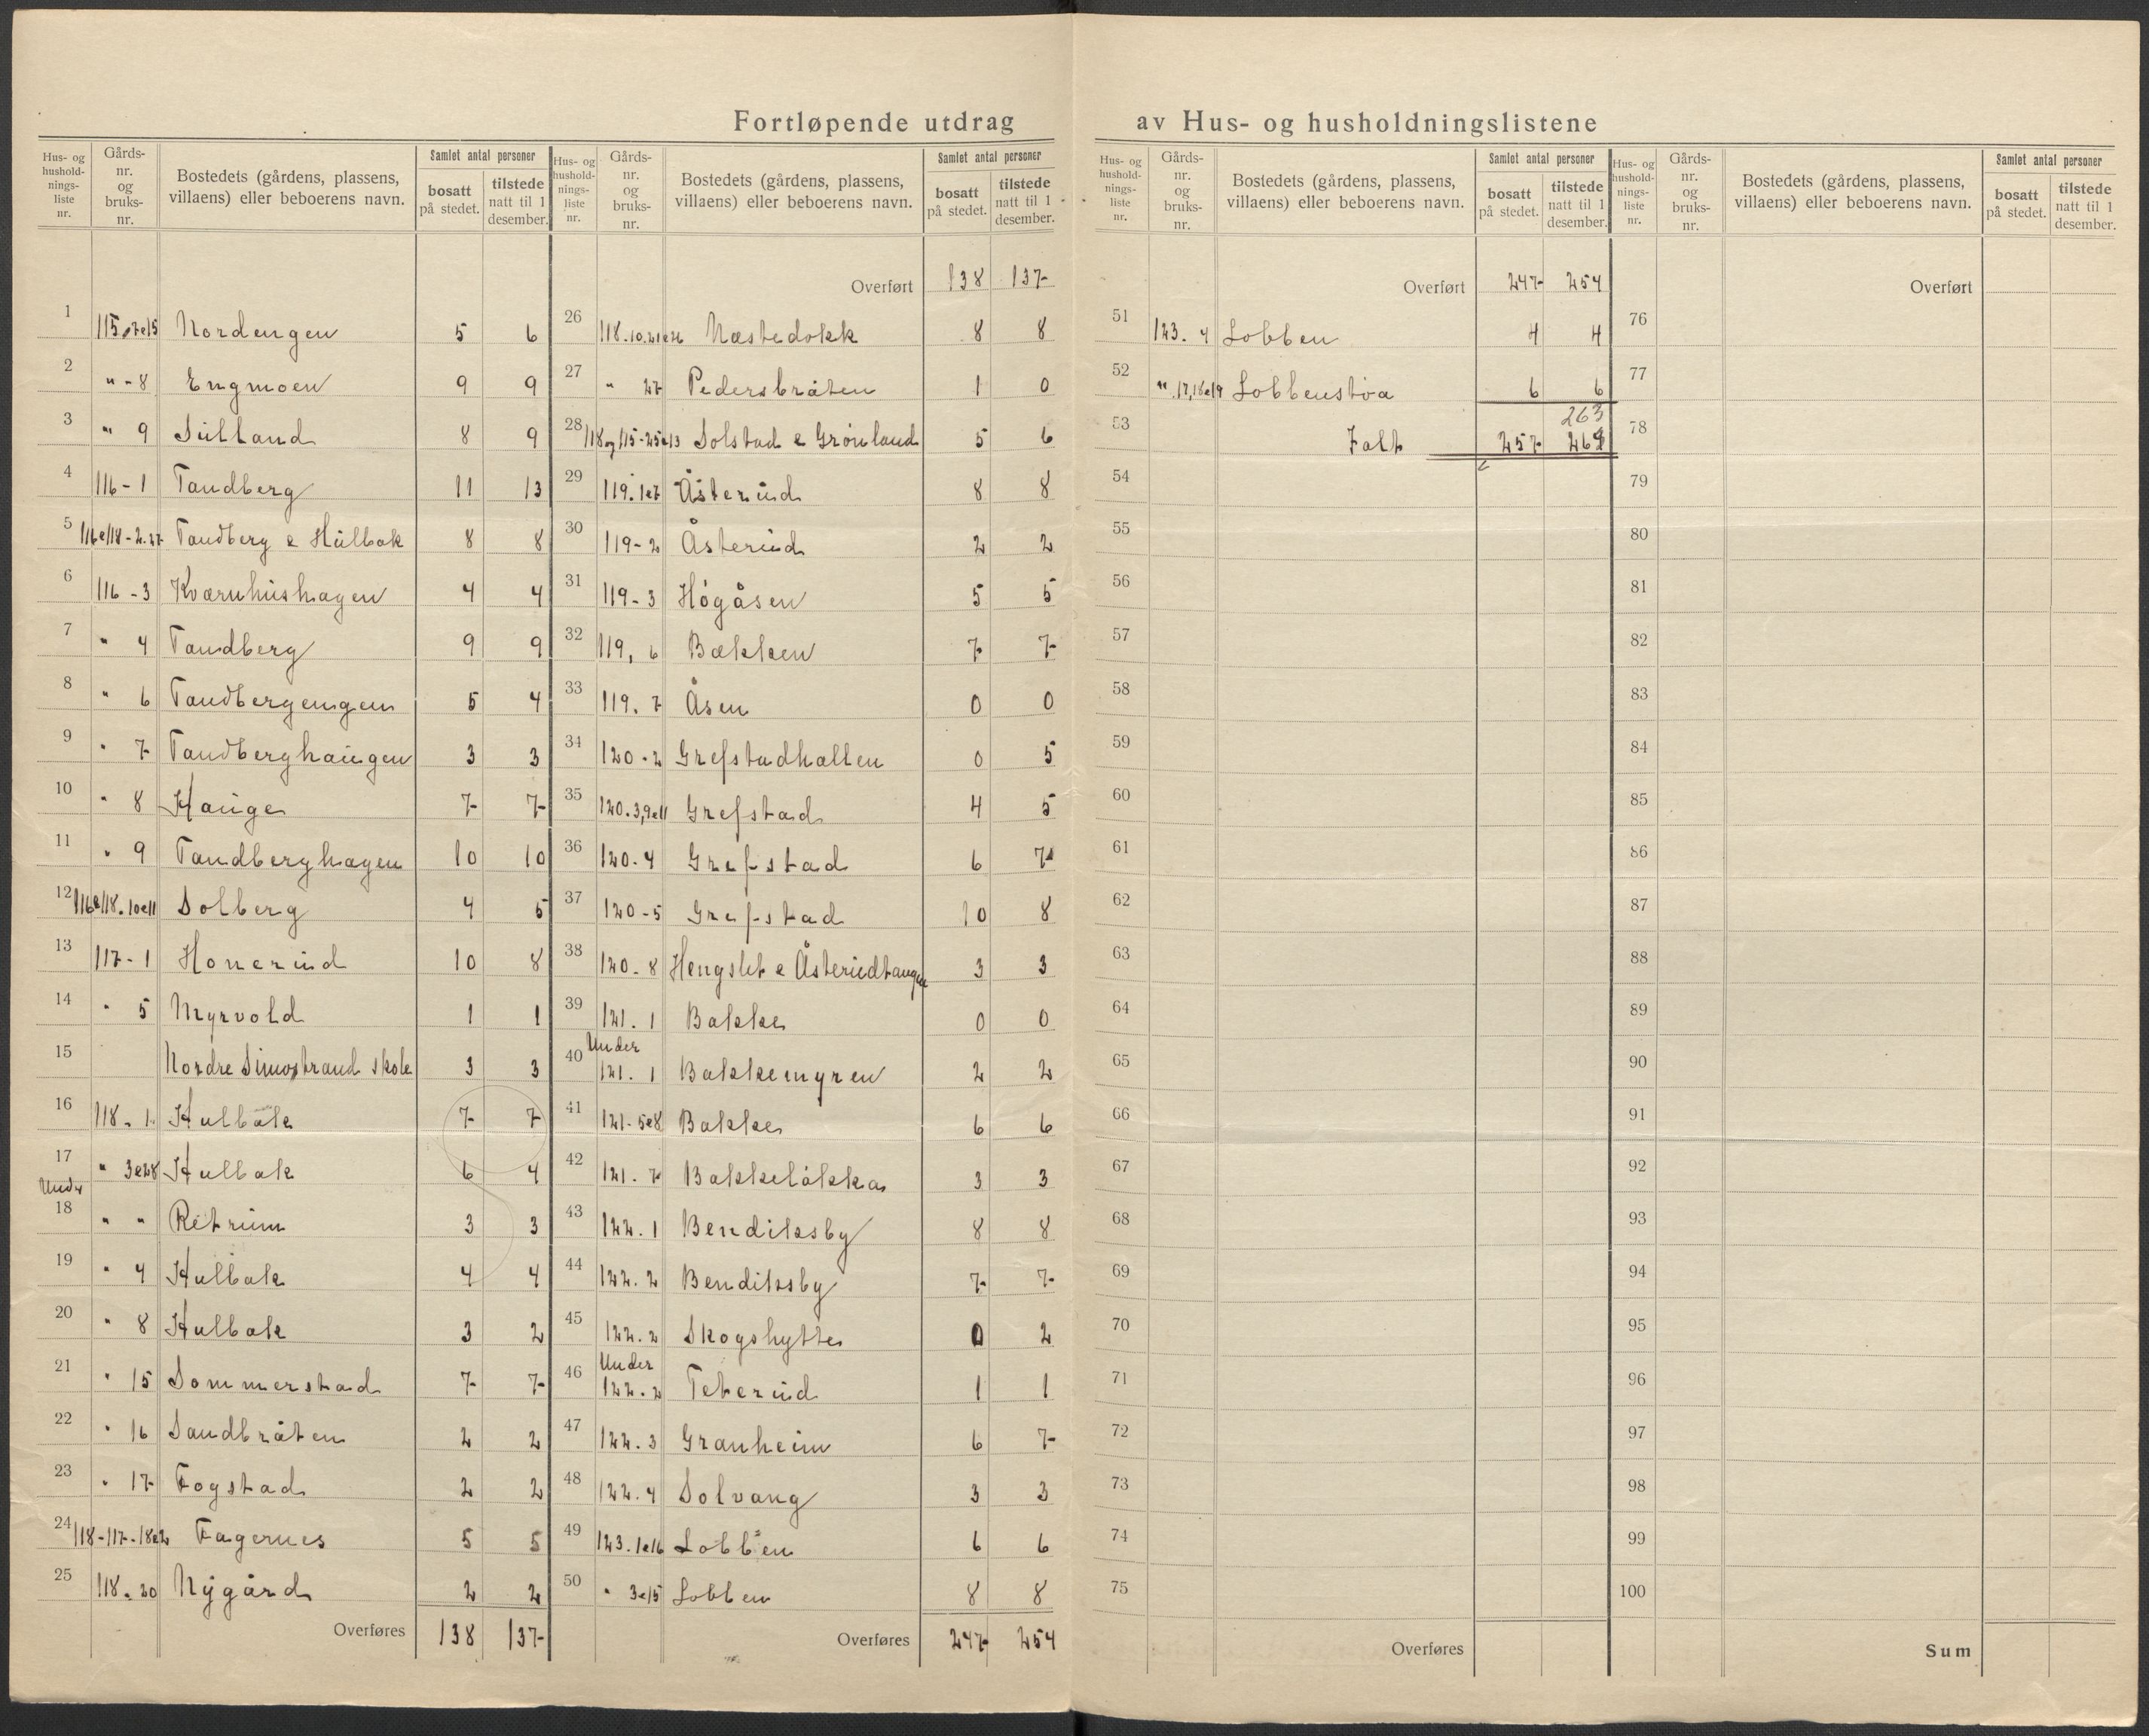 Fortløpende utdrag av Hus- og husholdningslistene
Hus- og hushold-nings-liste nr.
Gårds-nr. og bruks-nr.
Bostedets (gårdens, plassens, villaens) eller beboerens navn.
Samlet antal personer
bosatt på stedet.
tilstede natt til 1 desember.
1 115,7e15 Nordengen 5 6
2 " - 8 Engmoen 9 9
3 " 9 Sulland 8 9
4 116-1 Tandberg 11 13
5 116e118-2.27 Tandberg e Hulbak 8 8
6 116-3 Kværnhushagen 4 4
7 " 4 Tandberg 9 9
8 " 6 Tandbergengen 5 4
9 " 7 Tandberghaugen 3 3
10 " 8 Hauge 7 7
11 " 9 Tandberghagen 10 10
12 116e118.10e11 Solberg 4 5
13 117-1 Honerud 10 8
14 " 5 Myrvold 1 1
15 Nordre Simostrand skole 3 3
16 118. 1. Hulbak 7 7
17 " 3e28 Hulbak 6 4
Under
18 " " Retrum 3 3
19 " 4 Hulbak 4 4
20 " 8 Hulbak 3 2
21 " 15 Sommerstad 7 7
22 " 16 Sandbråten 2 2
23 " 17 Fogstad 2 2
24 118-117-18e2 Fagernes 5 5
25 118.20 Nygård 2 2
Overføres 138 137
Hus- og hushold-nings-liste nr.
Gårds-nr. og bruks-nr.
Bostedets (gårdens, plassens, villaens) eller beboerens navn.
Samlet antal personer
bosatt på stedet.
tilstede natt til 1 desember.
Overført 138 137
26 118.10.21e26 Næstedokk 8 8
27 " 27 Pedersbråten 1 0
28 118og115-25e13 Solstad e Grønland 5 6
29 119.1e7 Åsterud 8 8
30 119-2 Åsterud 2 2
31 119-3 Høgåsen 5 5
32 119, 6 Bækken 7 7
33 119. 7 Åsen 0 0
34 120-2 Grefstadhallen 0 5
35 120.3,9e11 Grefstad 4 5
36 120-4 Grefstad 6 7
37 120-5 Grefstad 10 8
38 120-8 Hengslet e Åsterudtangen 3 3
39 121. 1 Bakke 0 0
Under
40 121. 1 Bakkemyren 2 2
41 121-5e8 Bakke 6 6
42 121. 7 Bakkeløkka 3 3
43 122.1 Bendiksby 8 8
44 122.2 Bendiksby 7 7
45 122.2 Skogshytte 0 2
Under
46 122.2 Teterud 1 1
47 122.3 Granheim 6 7
48 122.4 Solvang 3 3
49 123.1e16 Lobben 6 6
50 " 3e15 Lobben 8 8
Overføres 247 254
Hus- og hushold-nings-liste nr.
Gårds-nr. og bruks-nr.
Bostedets (gårdens, plassens, villaens) eller beboerens navn.
Samlet antal personer
bosatt på stedet.
tilstede natt til 1 desember.
Overført 247 254
51 123. 4 Lobben 4 4
52 " 17,18e19 Lobbenstøa 6 6
263
53 Ialt 257 264
54
55
56
57
58
59
60
61
62
63
64
65
66
67
68
69
70
71
72
73
74
75
Overføres
Hus- og hushold-nings-liste nr.
Gårds-nr. og bruks-nr.
Bostedets (gårdens, plassens, villaens) eller beboerens navn.
Samlet antal personer
bosatt på stedet.
tilstede natt til 1 desember.
Overført
76
77
78
79
80
81
82
83
84
85
86
87
88
89
90
91
92
93
94
95
96
97
98
99
100
Sum